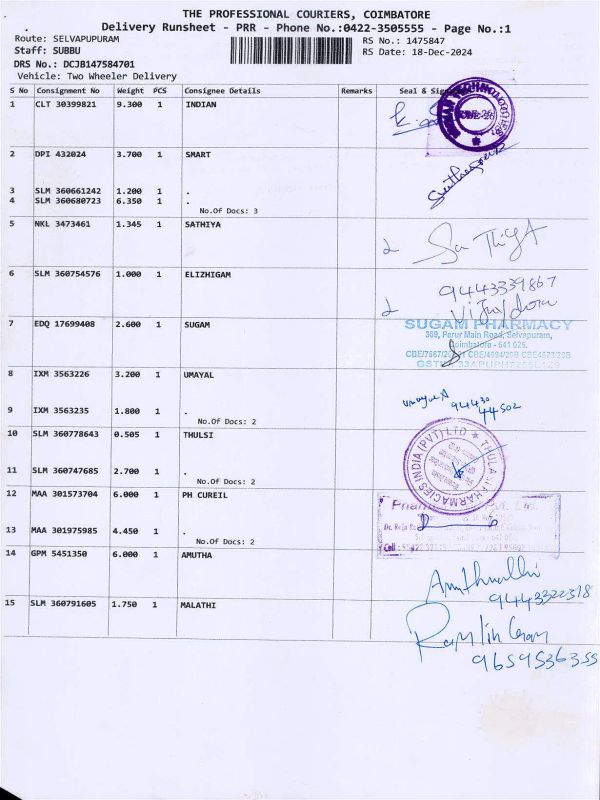 THE PROFESSIONAL COURIERS, COIMBATORE
Delivery Runsheet - PRR - Phone No.:0422-3505555 - Page No.:1
Route: SELVAPUPURAM
RS No.: 1475847
Staff: SUBBU
RS Date: 18-Dec-2024
DRS No.: DCJB147584701
Vehicle: Two Wheeler Delivery
S No Consignment No Weight PCS Consignee Details Remarks Seal &
1 CLT 30399821 9.300 1 INDIAN
2 DPI 432024 3.700 1 SMART
3 SLM 360661242 1.200 1 .
4 SLM 360680723 6.350 1 .
No.Of Docs: 3
5 NKL 3473461 1.345 1 SATHIYA
Sathiya
6 SLM 360754576 1.000 1 ELIZHIGAM
9443339867
7 EDQ 17699408 2.600 1 SUGAM
SUGAM PHARMACY
369, Perur Main Road, Selvapuram,
Coimbatore - 641 026.
8 IXM 3563226 3.200 1 UMAYAL
Umayal A 94430
44502
9 IXM 3563235 1.800 1 .
No.Of Docs: 2
10 SLM 360778643 0.505 1 THULSI
THULASI PHARMACIES INDIA (PVT) LTD
11 SLM 360747685 2.700 1 .
No.Of Docs: 2
12 MAA 301573704 6.000 1 PH CUREIL
13 MAA 301975985 4.450 1 .
No.Of Docs: 2
14 GPM 5451350 6.000 1 AMUTHA
Amuthavalli
9443322318
15 SLM 360791605 1.750 1 MALATHI
9659536355